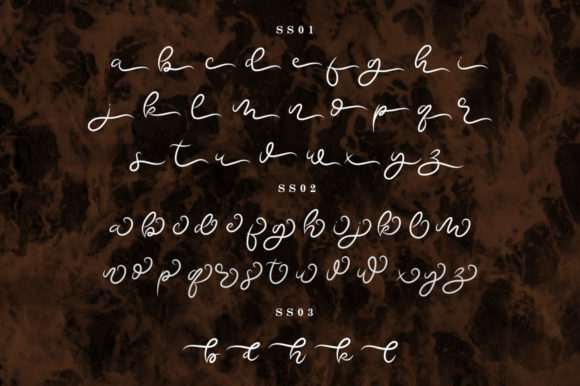 SS01
a b c d e f g h i
j k l m n o p q r
s t u v w x y z
SS02
a b c d e f g h i j k l m
n o p q r s t u v w x y z
SS03
b d h k l